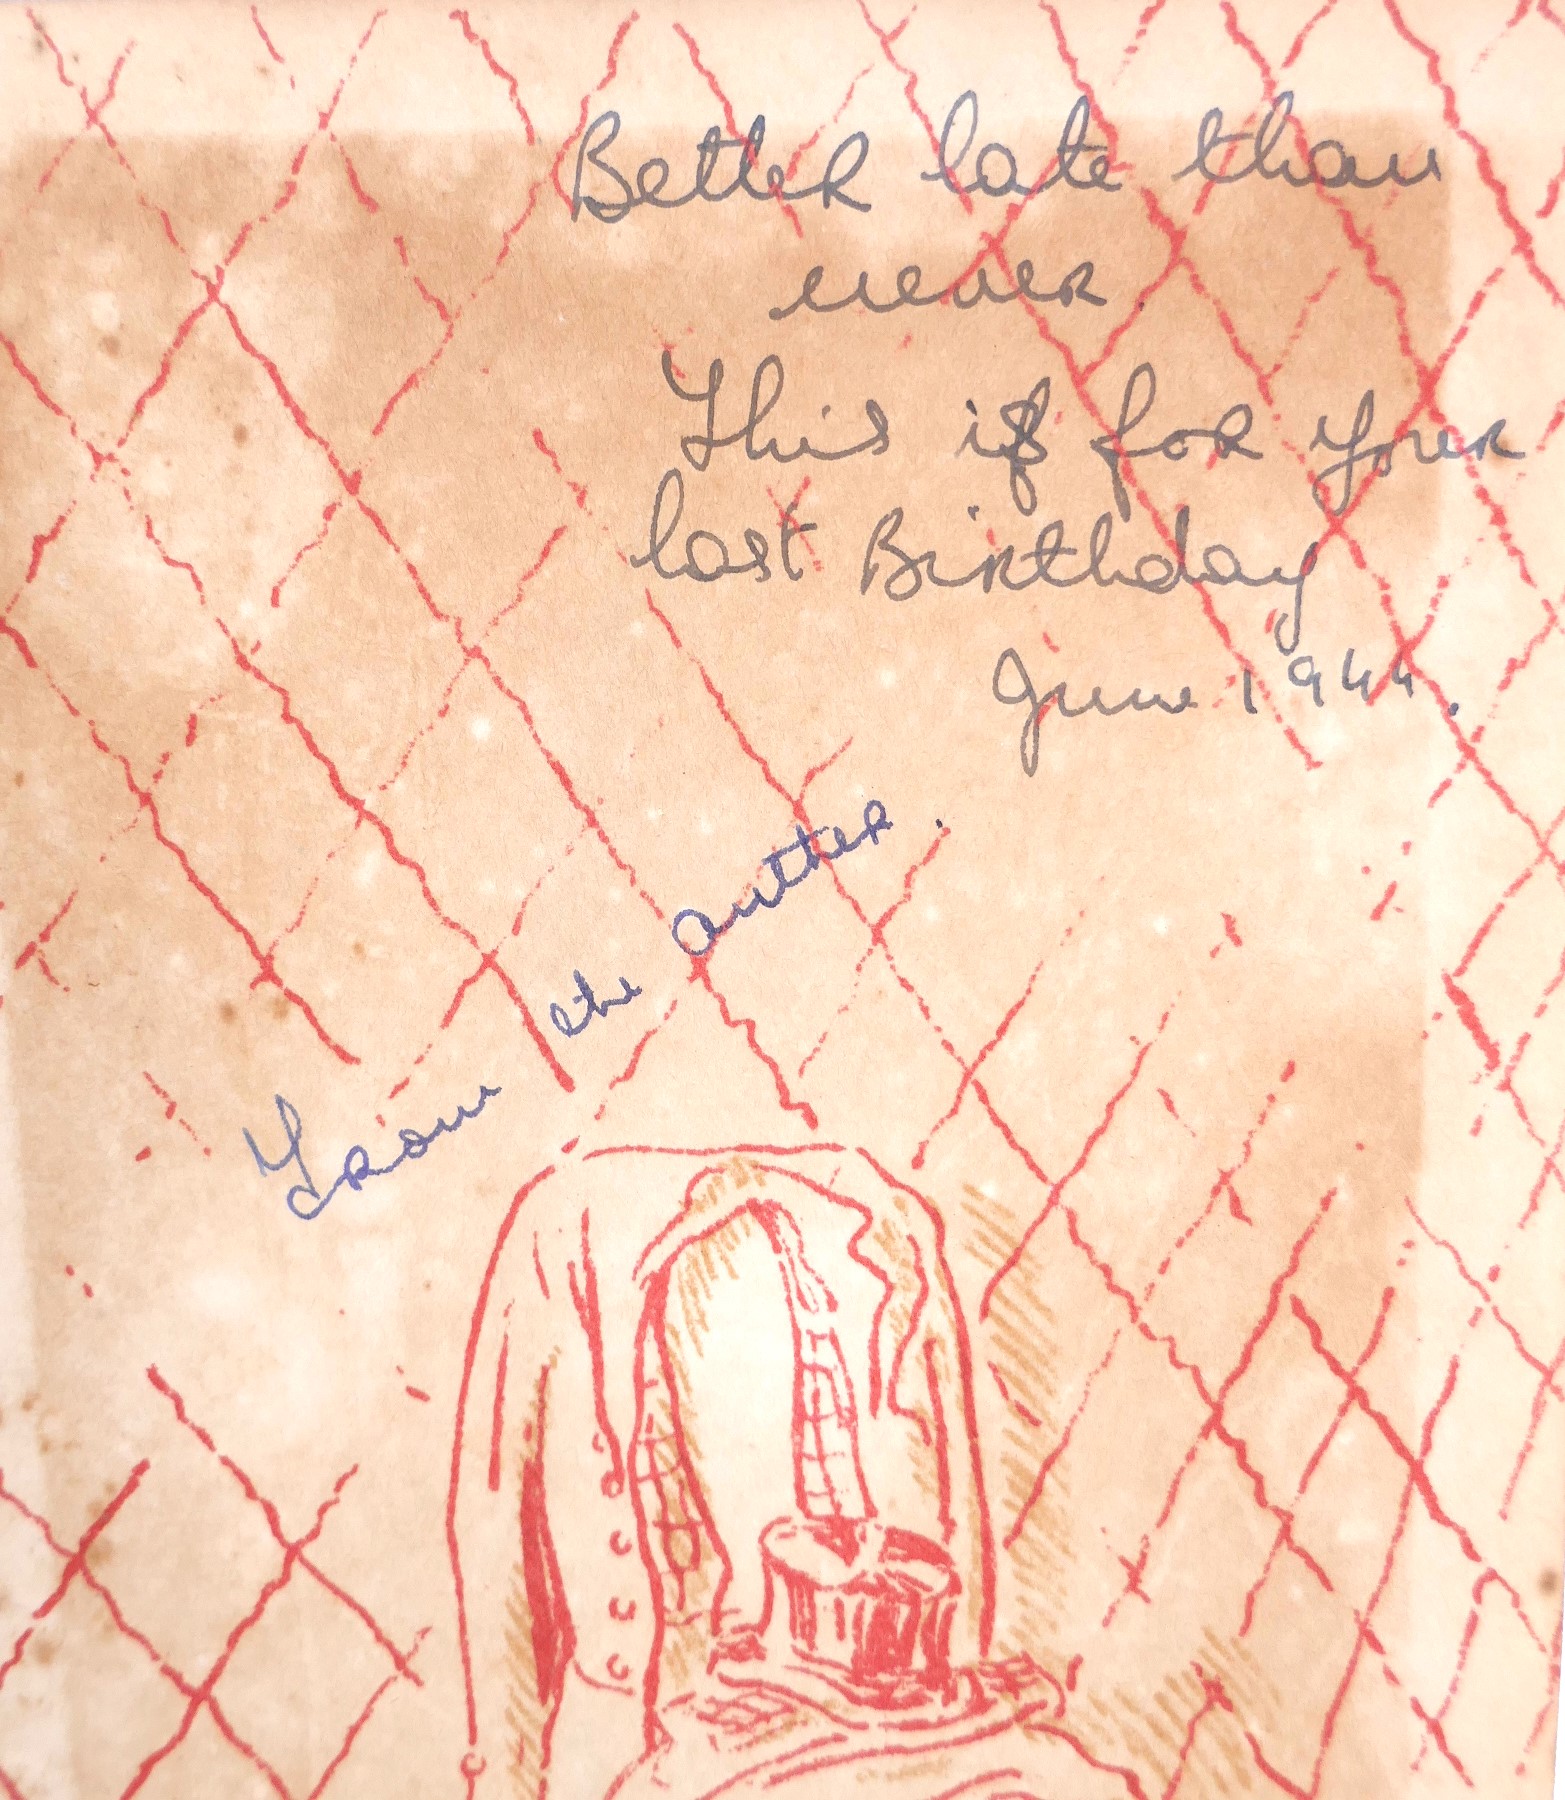 Better late than
never.
This is for your
last Birthday
June 1944.
From the auther.